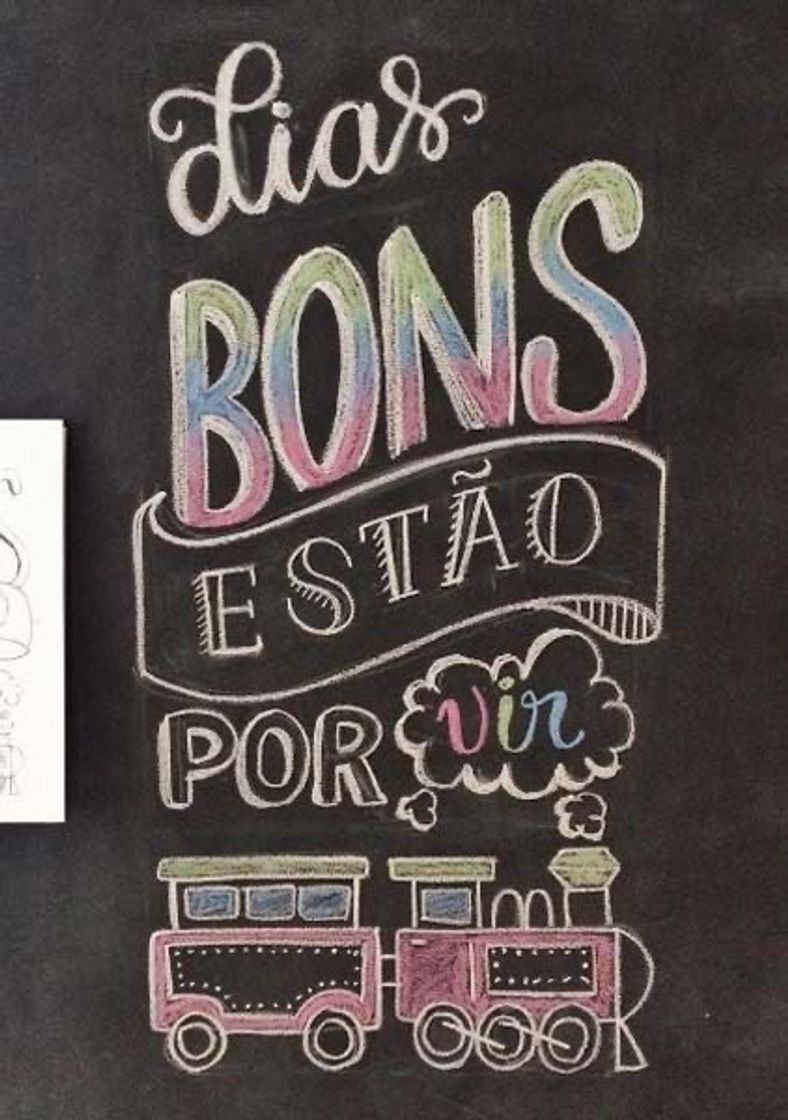 dias
BONS
ESTÃO
POR vir